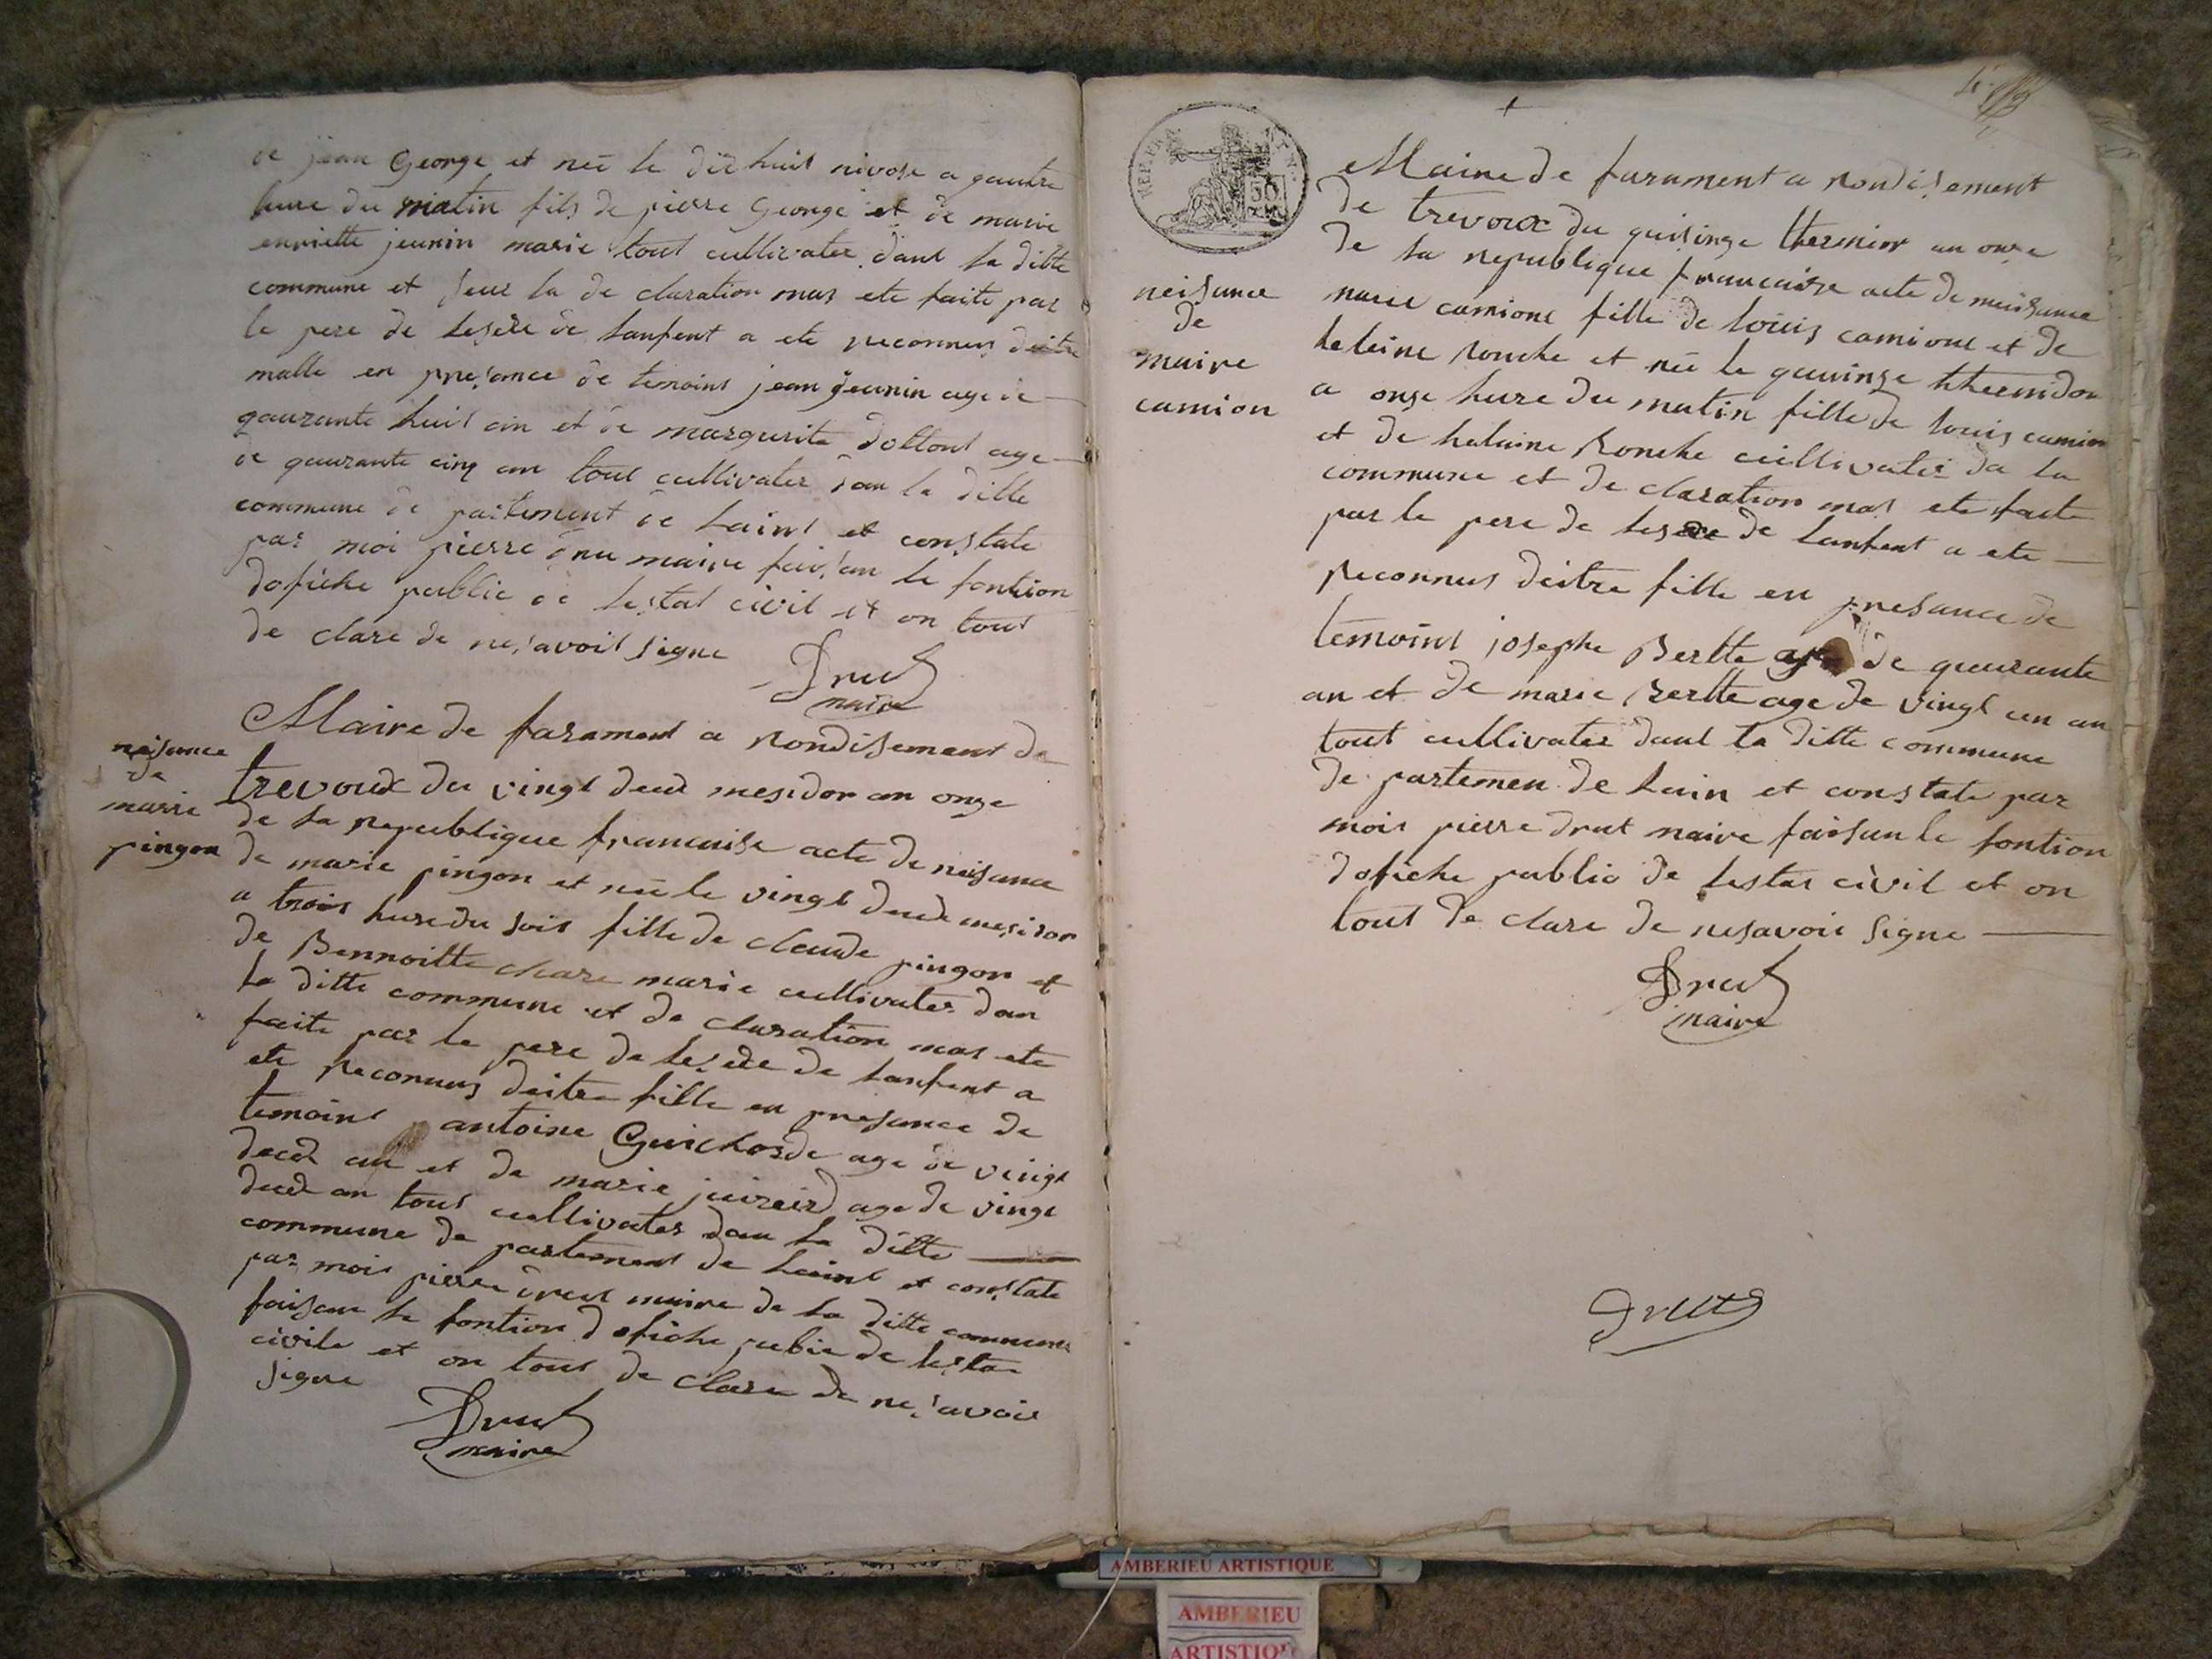 de jean George et neé le diz huit nivose a gautre
hure du matin fils de pierre George et de marie
enriette jeunin marie tout cultivater dans la ditte
commune et seur la de claration mas ete faite par
le pere de lesexe de lanfent a ete reconnus deitre
malle en presance de temoins jean jeunin age de
gaurante huit an et de margurite dottont age
de gaurante cinq an tout cultivater dan la ditte
commune de partement de laint et constate
par moi pierre dru maire faisan le fontion
dofiche public de lestat civil et on tout
de clare de nesavoit signe
Drut
maire
neisance
de
marie
pingon
Maire de farament a rondisement de
trevoux du vingt deux mesidor an onze
de la republique francaise acte de neisance
de marie pingon et neé le vingt deux mesidor
a trois hure du soir fille de claude pingon et
de Bennoitte chare marie cultivater dan
la ditte commune et de claration mas ete
faite par le pere de lesexe de lanfent a
ete reconnus deitre fille en presance de
temoins antoine Guichorde age de vingt
deux an et de marie age de vingt
deux an tout cultivater dan la ditte
commune de partement de laint et constate
par mois pierre drut maire de la ditte commune
faisan le fontion dofiche pubic de lesta
civile et on tout de clare de nesavoir
signe
Drut
maire
REP. FRA
50
neisance
de
maire
camion
Maire de farament a rondisement
de trevoux du guisinze thermior an onze
de la republique francaise acte de neisance
marie camione fille de louis camione et de
heleine ronche et neé le gauinze thermidor
a onze hure du matin fille de louis camion
et de helaine Ronche cultivater da la
commune et de claration mas ete faite
par le pere de lesexe de lanfent a ete
reconnus deitre fille en presance de
temoins josephe Bertte age de gaurante
an et de marie Bertte age de vingt un an
tout cultivater dant la ditte commune
de partemen de lain et constate par
mois pierre drut maire faisan le fontion
dofiche public de lestat civil et on
tout de clare de nesavoir signe
Drut
maire
Drut
AMBERIEU ARTISTIQUE
AMBERIEU
ARTISTIQ